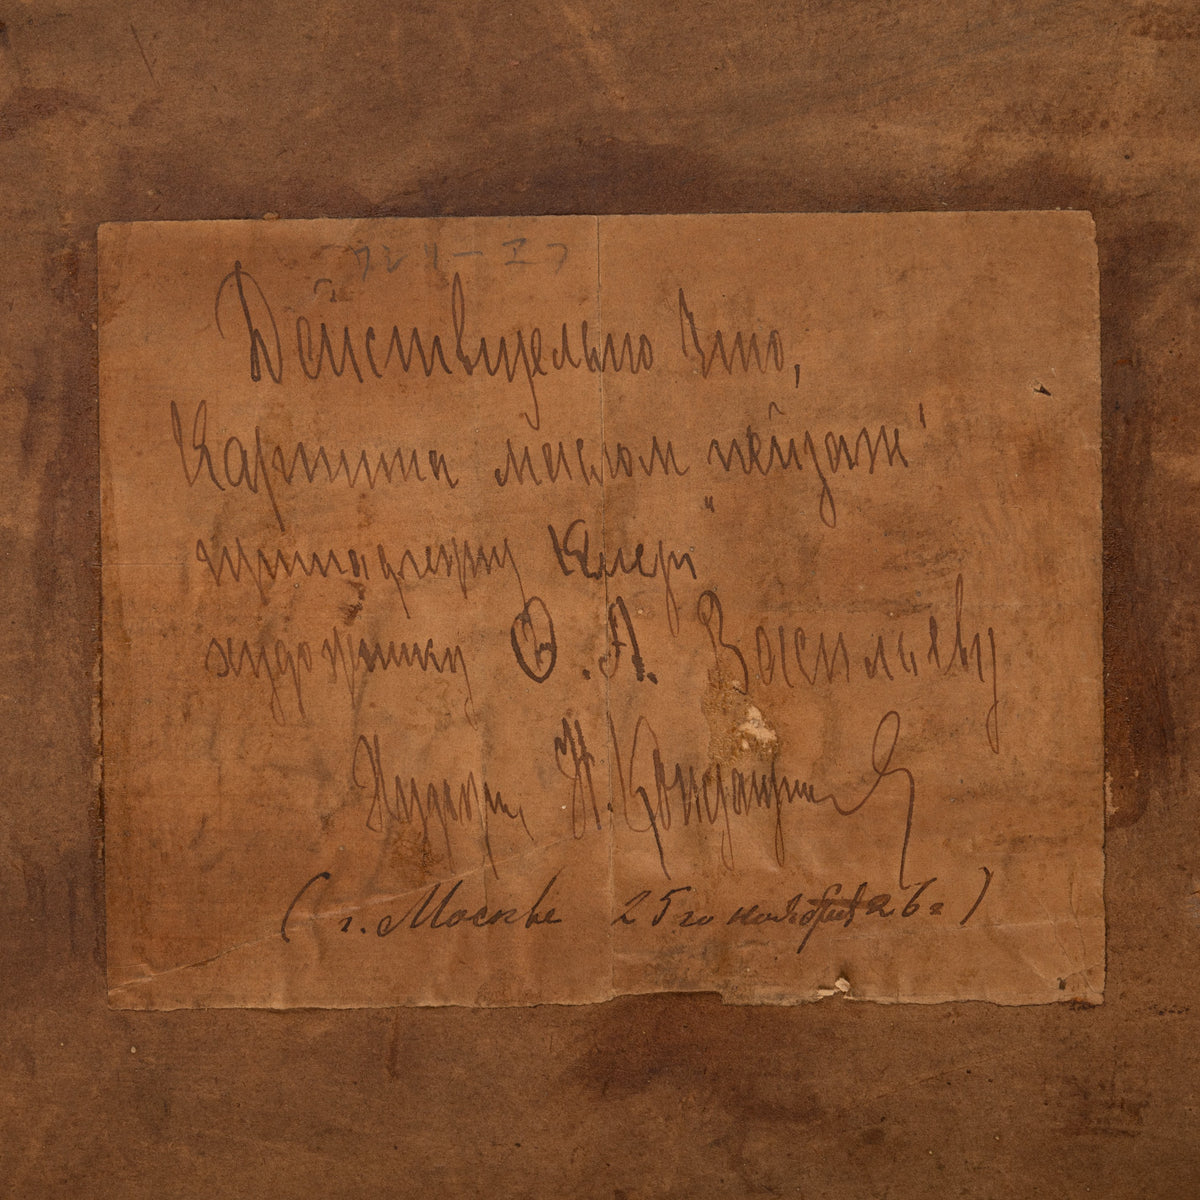 Действительно Это,
Картина маслом "пейзаж"
принадлежит
художнику Ф. А. Васильеву
Худож. Н.
(г. Москве 25го ноября 26 г)